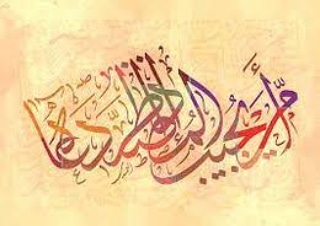 أمن يجيب المضطر إذا دعاه